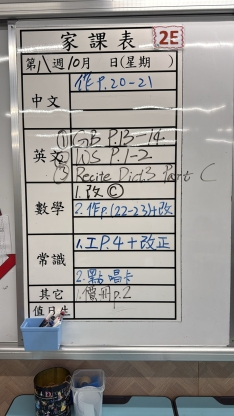 家課表 2E
第八週10月 日(星期 )
中文 作P.20-21
英文 ①GB P.13-14
②WS P.1-2
③Recite Dict.3 Part C
數學 1.改Ⓒ
2.作p.(22-23)+改
常識 1.工P.4+改正
2.點唱卡
其它 1.價冊p.2
值日生